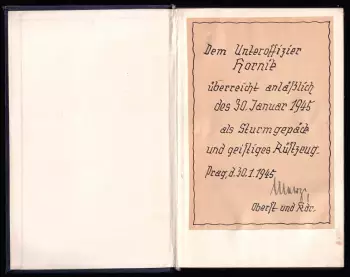 Dem Unteroffizier
Hornik
überreicht anläßlich
des 30. Januar 1945
als Sturmgepäck
und geistiges Rüstzeug.
Prag, d. 30.1.1945
Oberst und Kdr.